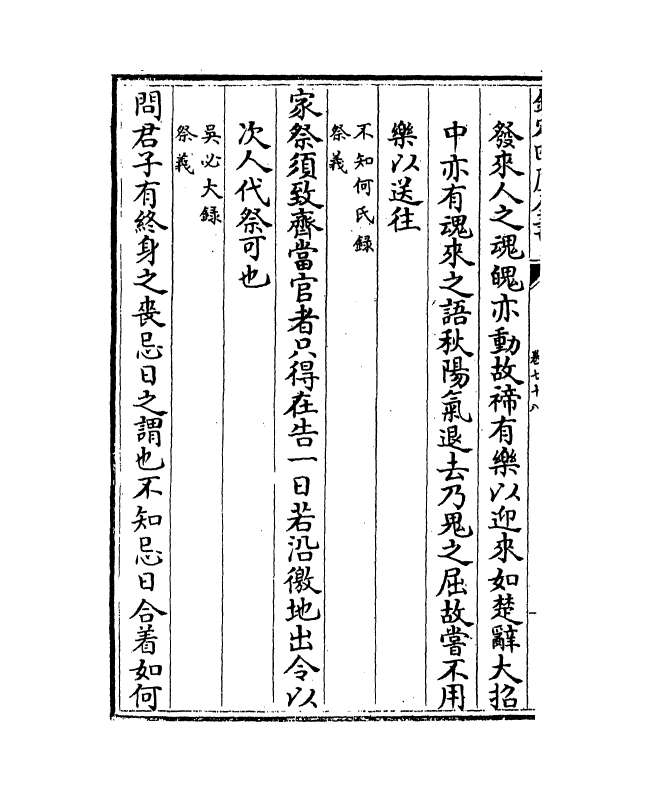 發來人之魂魄亦動故禘有樂以迎來如楚辭大招
中亦有魂來之語秋陽氣退去乃鬼之屈故嘗不用
樂以送往
不知何氏録
祭義
家祭須致齊當官者只得在告一日若沿徼地出令以
次人代祭可也
吳必大録
祭義
問君子有終身之喪忌日之謂也不知忌日合着如何
卷七十八